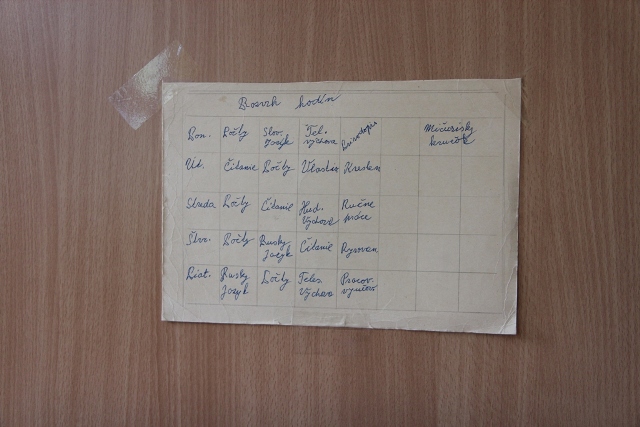 Rozvrh hodín
Pon. Počty Slov. Jazyk Tel. výchova Krasopis Mičurinský krúžok
Ut. Čítanie Počty Vlastiv Kreslen
Streda Počty Čítanie Hud. Výchova Ručné práce
Štvr. Počty Rusky Jazyk Čítanie Rysovan
Piat. Rusky Jazyk Počty Teles. Výchova Pracov. vyučov